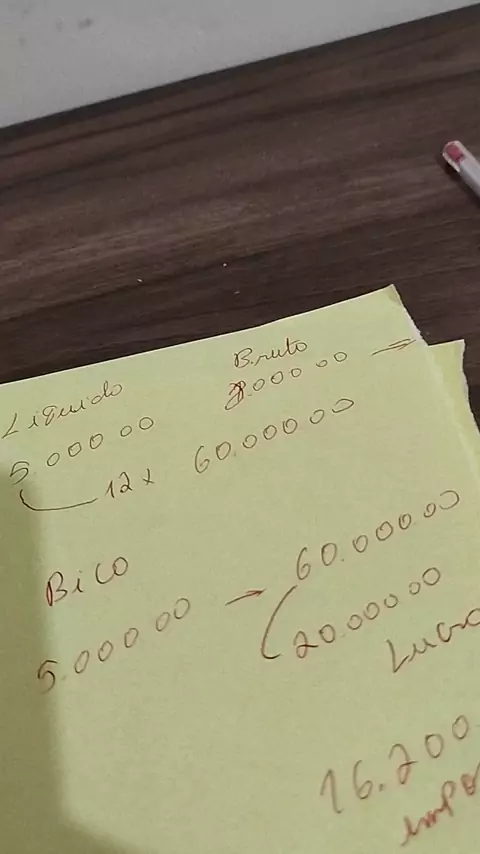 Liquido Bruto
5.000 00 .000 00 →
12x 60.000 00
Bico
5.000 00 → 60.000.00
20.000 00
Lucro
16.200.
impo